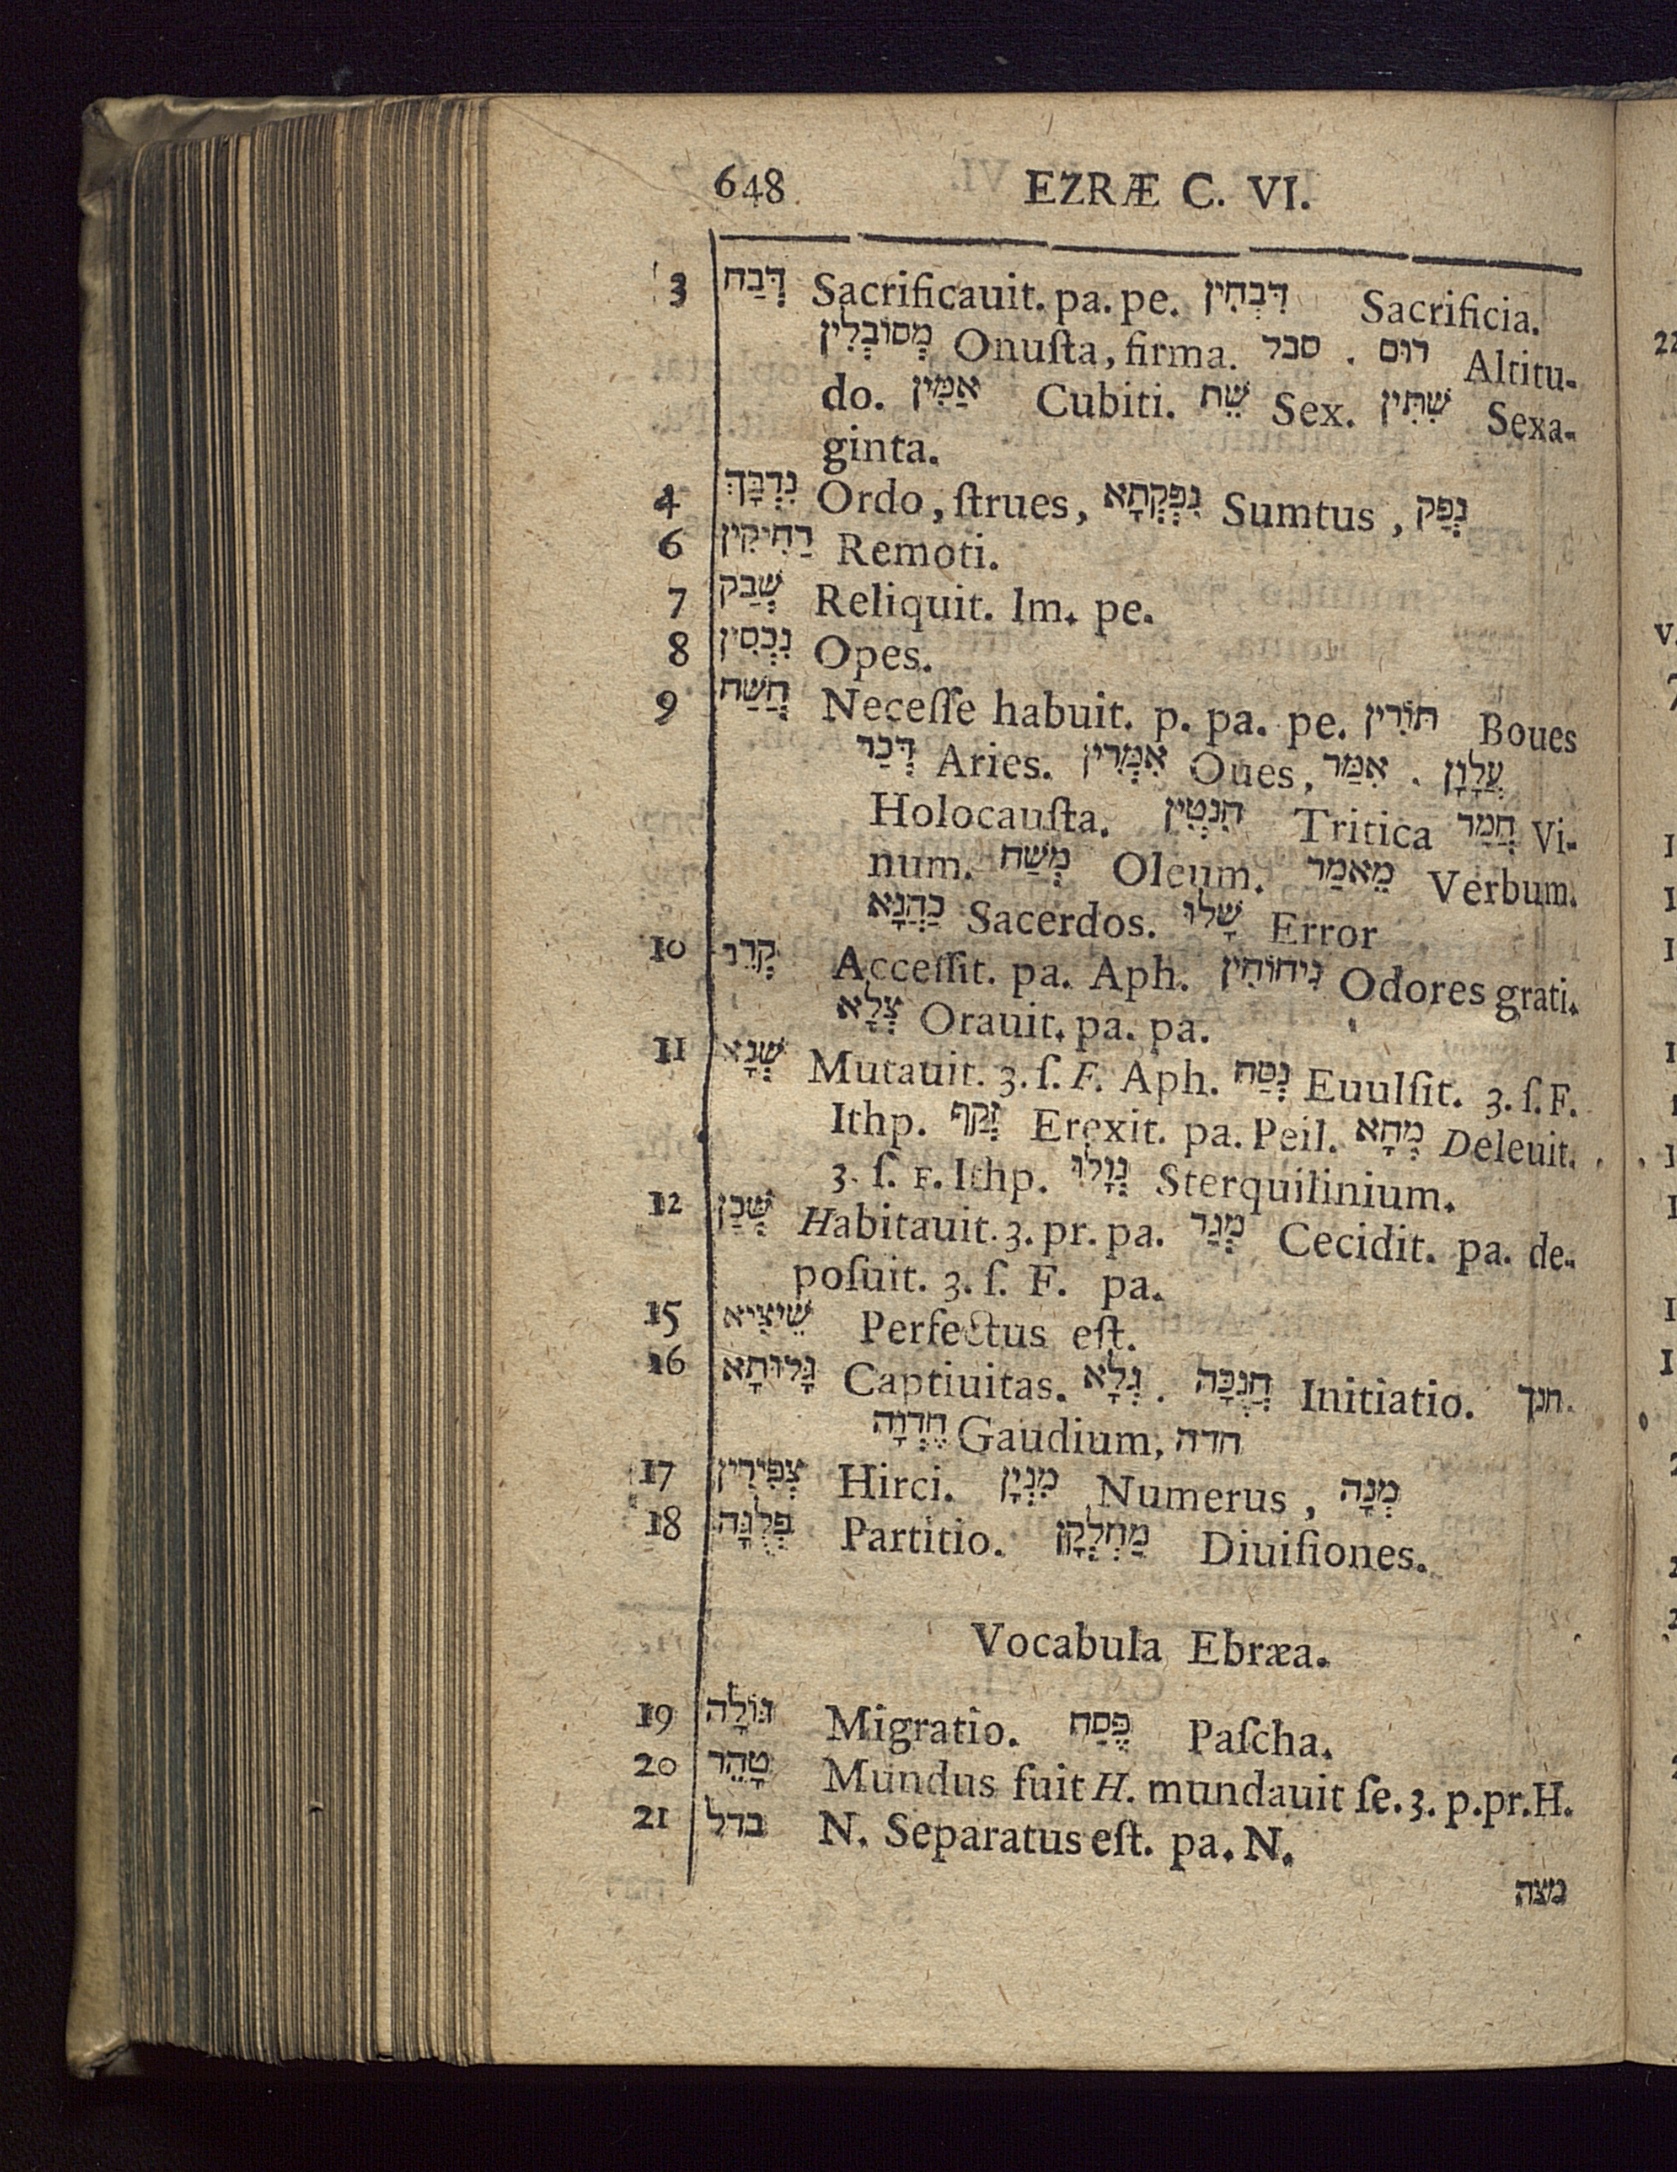 648 EZRÆ C. VI.
3 דְּבַח Sacrificauit. pa. pe. דִּבְחִין Sacrificia.
מְסוֹבְלִין Onuſta, firma. סבל . רוּם Altitu-
do. אַמִּין Cubiti. שֵׁת Sex. שִׁתִּין Sexa-
ginta.
4 נִדְבָּךְ Ordo, ſtrues, נִפְקְתָא Sumtus, נְפַק
6 רַחִיקִין Remoti.
7 שְׁבַק Reliquit. Im. pe.
8 נִכְסִין Opes.
9 חֲשַׁח Neceſſe habuit. p. pa. pe. תּוֹרִין Boues
דְּכַר Aries. אִמְּרִין Oues, אִמַּר . עֲלָוָן
Holocauſta. חִנְטִין Tritica חֲמַר Vi-
num. מְשַׁח Oleum. מֵאמַר Verbum.
כַּהֲנָא Sacerdos. שָׁלוּ Error
10 קְרֵב Acceſſit. pa. Aph. נִיחוֹחִין Odores grati.
צְלָא Orauit. pa. pa.
11 שְׁנָא Mutauit. 3. ſ. F. Aph. נְסַח Euulſit. 3. ſ. F.
Ithp. זְקַף Erexit. pa. Peil. מְחָא Deleuit.
3. ſ. F. Ithp. נְוָלוּ Sterquilinium.
12 שְׁכַן Habitauit. 3. pr. pa. מְגַר Cecidit. pa. de-
poſuit. 3. ſ. F. pa.
15 שֵׁיצִיא Perfectus eſt.
16 גָּלוּתָא Captiuitas. גְּלָא . חֲנֻכָּה Initiatio. חנך.
חֶדְוָה Gaudium, חדה
17 צְפִירִין Hirci. מִנְיָן Numerus, מְנָה
18 פְּלֻגָּה Partitio. מַחְלְקָן Diuiſiones.
Vocabula Ebræa.
19 גּוֹלָה Migratio. פֶּסַח Paſcha.
20 טָהֵר Mundus fuit H. mundauit ſe. 3. p. pr. H.
21 בדל N. Separatus eſt. pa. N.
מצה